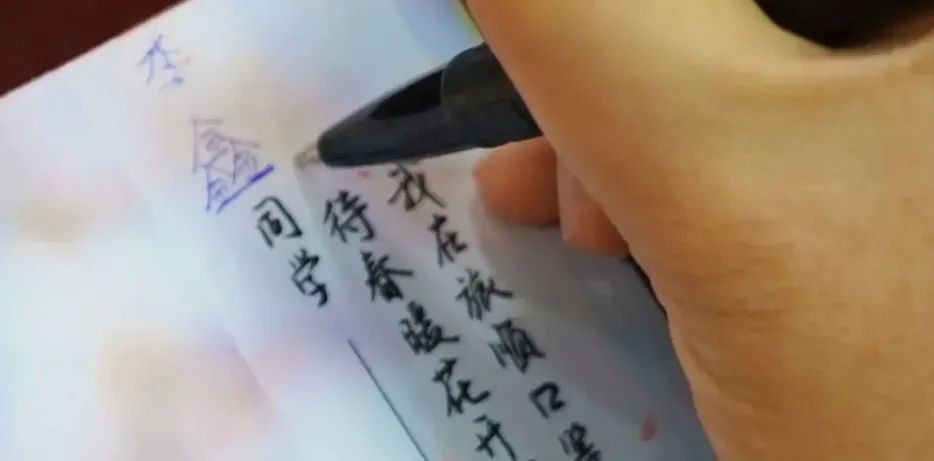 李鑫同学
待春暖花开
我在旅顺口